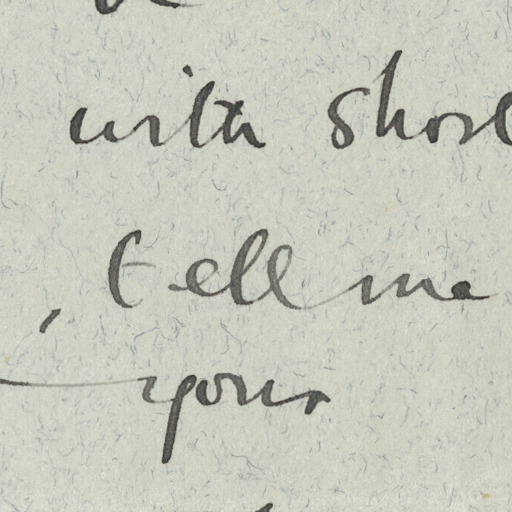 with short
, tell me
your